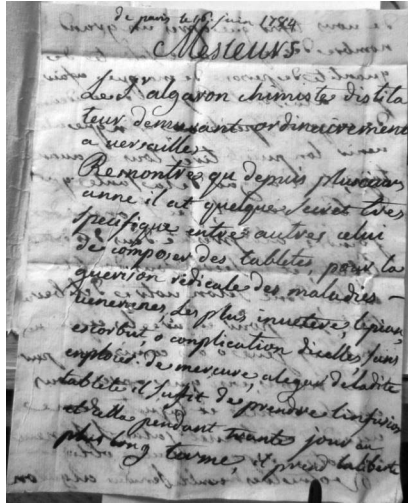 de paris le 16. juin 1784
Messieurs
Le S. algaron chimiste distila
teur demeurant ordinairement
a versailles
Remontre qu depuis plusieurs
anne il at quelques secret tres
specifique entre autres celui
de composer des tablete, pour la
guerison radicale des maladies
veneriennes Les plus invetere,
escorbut, o complication dicelles, sans
emploier de mercure a
tablete il suffit de prendre linfusion
pendant trante jour au
plus long terme, il prend laliberte